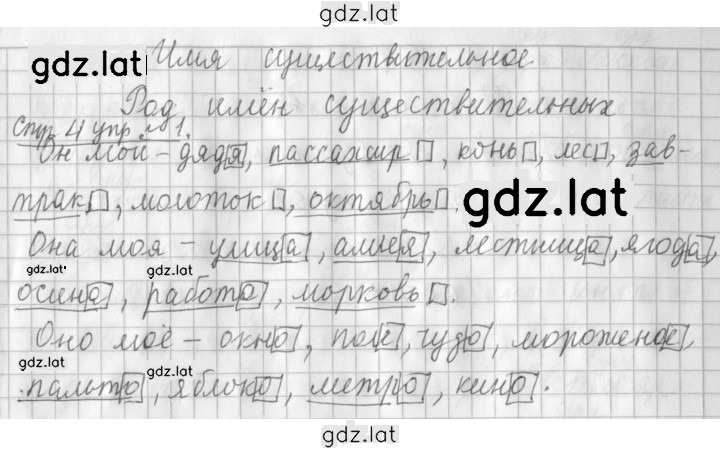 gdz.lat
gdz.lat Имя существительное
Род имён существительных
Стр. 4 упр. № 1.
Он мой – дядя, пассажир, конь, лес, зав-
трак, молоток, октябрь.
gdz.lat
Она моя – улица, аллея, лестница, ягода,
gdz.lat gdz.lat
осина, работа, морковь.
Оно моё – окно, поле, чудо, мороженое,
gdz.lat gdz.lat
пальто, яблоко, метро, кино.
gdz.lat